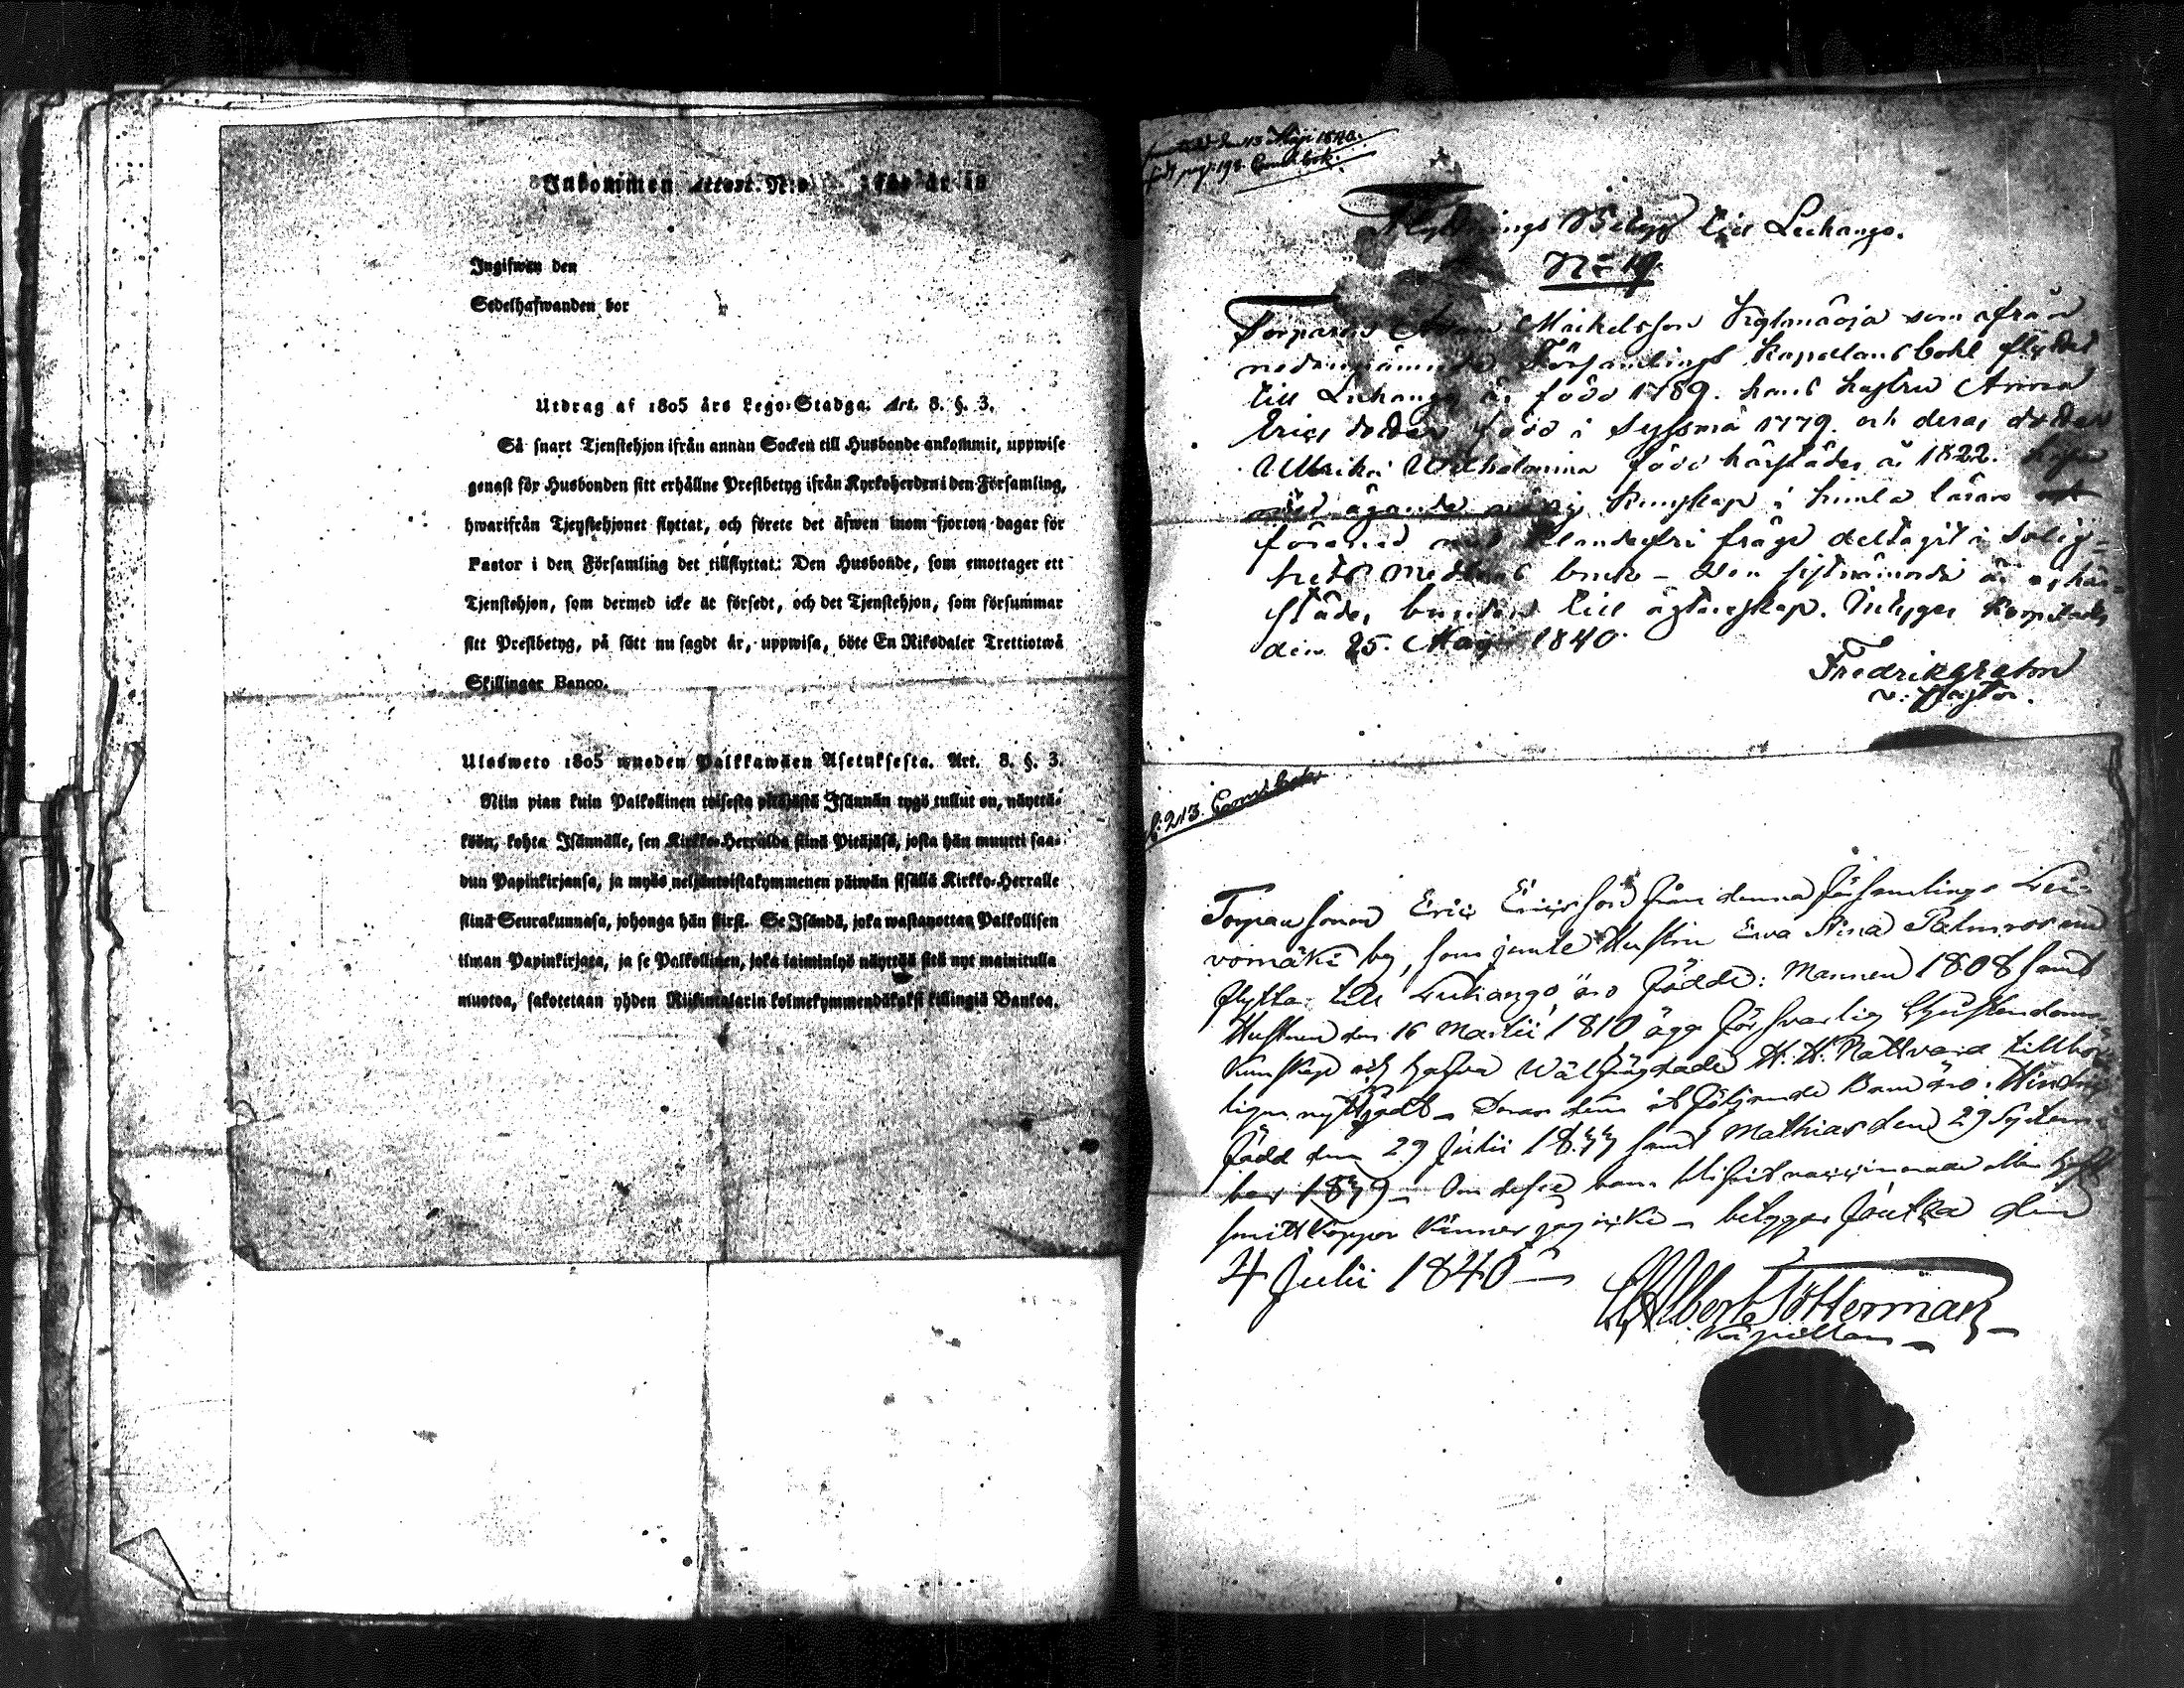 Inkommen Attest. N:o för år 18
Ingifwen den
Sedelhafwanden bor
Utdrag af 1805 års Lego-Stadga. Art. 8. §. 3.
Så snart Tjenstehjon ifrån annan Socken till Husbonde ankommit, uppwise
genast för Husbonden sitt erhållne Prestbetyg ifrån Kyrkoherden i den Församling,
hwarifrån Tjenstehjonet flyttat, och förete det äfwen inom fjorton dagar för
Pastor i den Församling det tillflyttat: Den Husbonde, som emottager ett
Tjenstehjon, som dermed icke är försedt, och det Tjenstehjon, som försummar
sitt Prestbetyg, på sätt nu sagdt är, uppwisa, böte En Riksdaler Trettiotwå
Skillingar Banco.
Ulosweto 1805 wuoden Palkkawäen Asetuksesta. Art. 8. §. 3.
Niin pian kuin Palkollinen toisesta pitäjästä Isännän tygö tullut on, näyttä-
köön, kohta Isännälle, sen Kirkko-Herralda siinä Pitäjäsä, josta hän muutti saa-
dun Papinkirjansa, ja myös neljäntoistakymmenen päiwän sisällä Kirkko-Herralle
siinä Seurakunnasa, johonga hän siirsi. Se Isändä, joka wastanottaa Palkollisen
ilman Papinkirjata, ja se Palkollinen, joka laiminlyö näyttää sitä nyt mainitulla
muotoa, sakotetaan yhden Riikintalarin kolmekymmendäkaksi killingiä Bankoa.
den 13 1840.
pag: 198.
Flyttnings Betyg till Luhango.
N:o 19.
Torparen Adam Mickelsson som ifrån
nedannämnde Församlings Kapellans bohl flyttat
till Luhango är född 1789. hans hustru Anna
Erics dotter född i Sysmä 1779. och deras dotter
Ullrika Wilhelmina född härstädes år 1822.
ägande kunskap i läran
med frägd deltagit i Salig-
hets Medlens bruk – den sistnämnda är ej här-
städes bunden till ägtenskap. Intygar
den 25. Maji 1840.
Fredrik
v. Pastor.
213.
Torpare sonen Eric Ericsson från denna församlings
vomäki by, som jemte Hustrun Ewa Stina Palmroos
flytta till Luhango, äro födde: Mannen 1808 samt
Hustrun den 16 Martii 1810 äga försvarlig Christendoms
Kunskap och hafva H. H. Nattvard tillbör-
ligen nyttjadt – Deras följande Barn äro: Hindric
född den 29 Julii samt Mathias den 29 Septem-
ber Om desse barn blifvit vaccinerade eller haft
smittkoppor känner jag icke – betygar Joutza den
4 Julii 1840 –
Albert Tötterman
Kapellan –